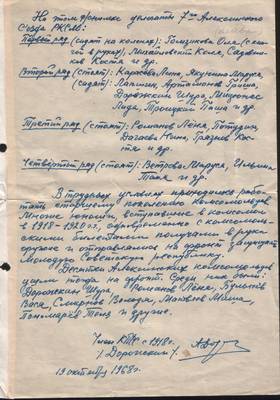 На этом фотоснимке делегаты 7го Алексинского
Съезда РКСМ:
Первый ряд (сидят на коленях): Голышкова Оля (с книгой
в руках), Михайловский Коля,
Костя и др.
Второй ряд (стоят): Карасёва Лена, Якушина Маруся,
(сидят): Лапшин, Артамонова Ариша,
Дорожский Шура, Митронас
Лида, Троицкий Паша и др.
Третий ряд (стоят): Романов Лёня,
Нина, Грязнов Костя
и др.
Четвёртый ряд (стоят): Ветрова Маруся, Ильина
Тася и др.
В трудных условиях приходилось работать
старшему поколению комсомольцев
Многие юноши, вступавшие в комсомол
в 1918-1920 г.г., одновременно с комсомольскими
билетами получали в руки
оружие и отправлялись на фронт защищать
молодую Советскую республику.
Десятки Алексинских комсомольцев
ушли тогда на фронт. Среди них были:
Дорожский Шура, Романов Лёня, Булыгин
Вася, Смирнов Володя, Яковлев Миша,
Пономарёв Толя и другие.
Член КПСС с 1918 г.
/Дорожский/
19 октября 1968 г.